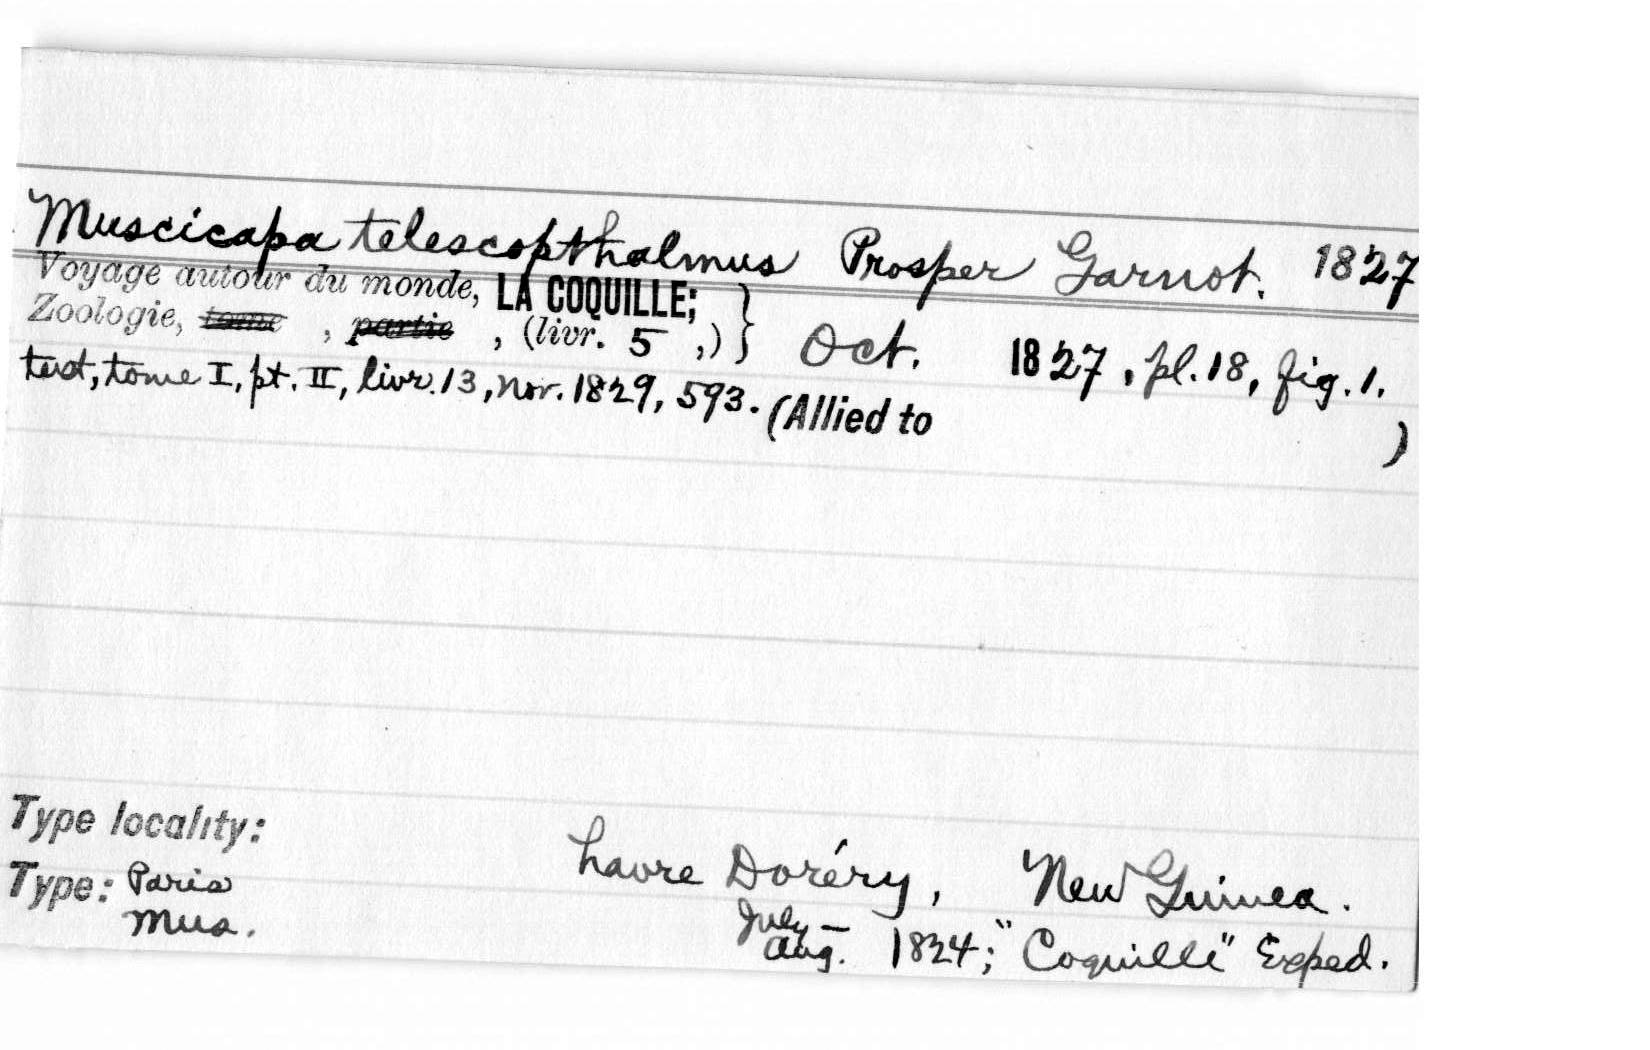 Muscicapa telescopthalmus Prosper Garnot. 1827
Voyage autour du monde, LA COQUILLE;
Zoologie, tome , partie , (livr. 5 ,) } Oct. 1827, pl. 18, fig. 1.
text, tome I, pt. II, livr. 13, Nov. 1829, 593. (Allied to )
Type locality:
havre Doréry, New Guinea.
Type: Paris
Mus.
July –
Aug. 1824; "Coquille" Exped.